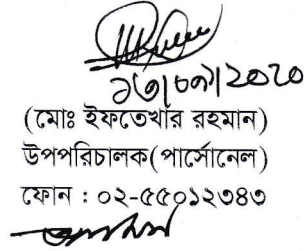 ১৬/০৯/২০২০
(মোঃ ইফতেখার রহমান)
উপপরিচালক(পার্সোনেল)
ফোন : ০২-৫৫০১২৩৪৩